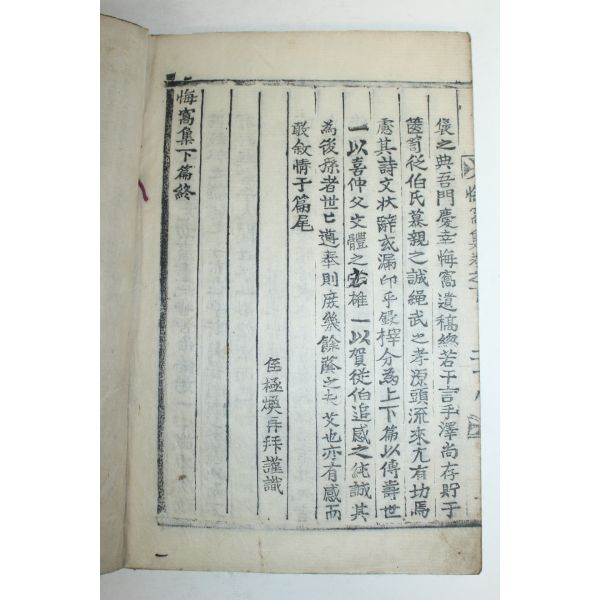 悔窩集卷之下
褒之典吾門慶幸悔窩遺稿緫若干言手澤尚存貯于
篋笥從伯氏慕親之誠繩武之孝源頭流來尤有功焉
慮其詩文狀辭或漏印乎鋟梓分為上下篇以傳壽世
一以喜仲父文體之宏雄一以賀從伯追感之純誠其
為後孫者世世遵奉則庶幾餘蔭之未艾也亦有感而
敢敘情于篇尾
侄極煥再拜謹識
悔窩集下篇終